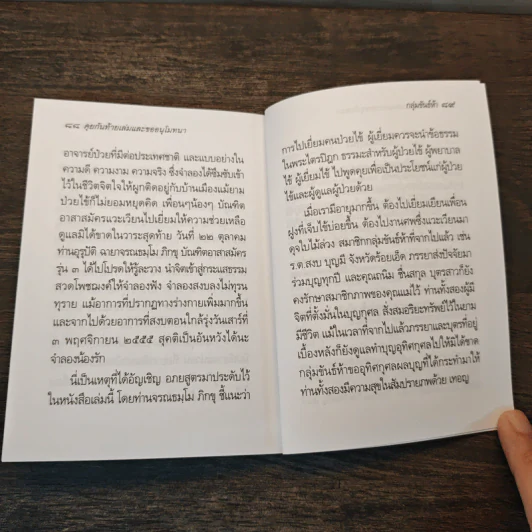 ๘๘ คุยกันท้ายเล่มและขออนุโมทนา
อาจารย์ป่วยที่มีต่อประเทศชาติ และแบบอย่างใน
ความดี ความงาม ความจริง ซึ่งจำลองได้ซึมซับเข้า
ไว้ในชีวิตจิตใจให้ผูกติดอยู่กับบ้านเมืองแม้ยาม
ป่วยไข้ก็ไม่ยอมหยุดคิด เพื่อนๆน้องๆ บัณฑิต
อาสาสมัครแวะเวียนไปเยี่ยมให้ความช่วยเหลือ
ดูแลมิได้ขาดในวาระสุดท้าย วันที่ ๒๒ ตุลาคม
ท่านอุรุบัติ ฉายาจรณธมฺโม ภิกขุ บัณฑิตอาสาสมัคร
รุ่น ๓ ได้ไปโปรดให้รู้ละวาง นำจิตเข้าสู่กระแสธรรม
สวดโพชฌงค์ให้จำลองฟัง จำลองสงบลงไม่ทุรน
ทุราย แม้อาการที่ปรากฏทางร่างกายเพิ่มมากขึ้น
และจากไปด้วยอาการที่สงบตอนใกล้รุ่งวันเสาร์ที่
๓ พฤศจิกายน ๒๕๕๕ สุคติเป็นอันหวังได้นะ
จำลองน้องรัก
นี่เป็นเหตุที่ได้อัญเชิญ อภยสูตรมาประดับไว้
ในหนังสือเล่มนี้ โดยท่านจรณธมฺโม ภิกขุ ชี้แนะว่า
กลุ่มขันธ์ห้า ๘๙
การไปเยี่ยมคนป่วยไข้ ผู้เยี่ยมควรจะนำข้อธรรม
ในพระไตรปิฎก ธรรมะสำหรับผู้ป่วยไข้ ผู้พยาบาล
ไข้ ผู้เยี่ยมไข้ ไปพูดคุยเพื่อเป็นประโยชน์แก่ผู้ป่วย
ไข้และผู้ดูแลผู้ป่วยด้วย
เมื่อเรามีอายุมากขึ้น ต้องไปเยี่ยมเยียนเพื่อน
ฝูงที่เจ็บไข้บ่อยขึ้น ต้องไปงานศพซึ่งแวะเวียนมา
ดุจใบไม้ล่วง สมาชิกกลุ่มขันธ์ห้าที่จากไปแล้ว เช่น
ร.ต.สงบ บุญมี จังหวัดร้อยเอ็ด ภรรยาส่งปัจจัยมา
ร่วมบุญทุกปี และคุณถนิม ชื่นสกุล บุตรสาวก็ยัง
คงรักษาสมาชิกภาพของคุณแม่ไว้ ท่านทั้งสองผู้มี
จิตที่ตั้งมั่นในบุญกุศล สั่งสมอริยะทรัพย์ไว้ในยาม
มีชีวิต แม้ในเวลาที่จากไปแล้วภรรยาและบุตรที่อยู่
เบื้องหลังก็ยังดูแลทำบุญอุทิศกุศลไปให้มิได้ขาด
กลุ่มขันธ์ห้าขออุทิศกุศลผลบุญที่ได้กระทำมาให้
ท่านทั้งสองมีความสุขในสัมปรายภพด้วย เทอญ